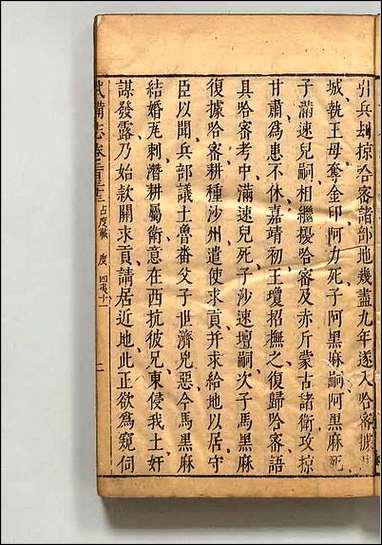 引兵刦掠哈密諸部地幾盡九年逐入哈密據
城執王母奪金印阿力死子阿黑麻嗣阿黑麻死
子滿速兒嗣相繼擾哈密及赤斤蒙古諸衛攻掠
甘肅爲患不休嘉靖初王瓊招撫之復歸哈密語
具哈密考中滿速兒死子沙速壇嗣次子馬黑麻
復據哈密耕種沙州遣使求貢并求給地以居守
臣以聞兵部議土魯番父子世濟兇惡今馬黑麻
結婚瓦剌潛耕屬衛意在西抗彼兄東侵我土奸
謀發露乃始款關求貢請居近地此正欲爲窺伺
武備志卷 占度載 度 四夷十一 二